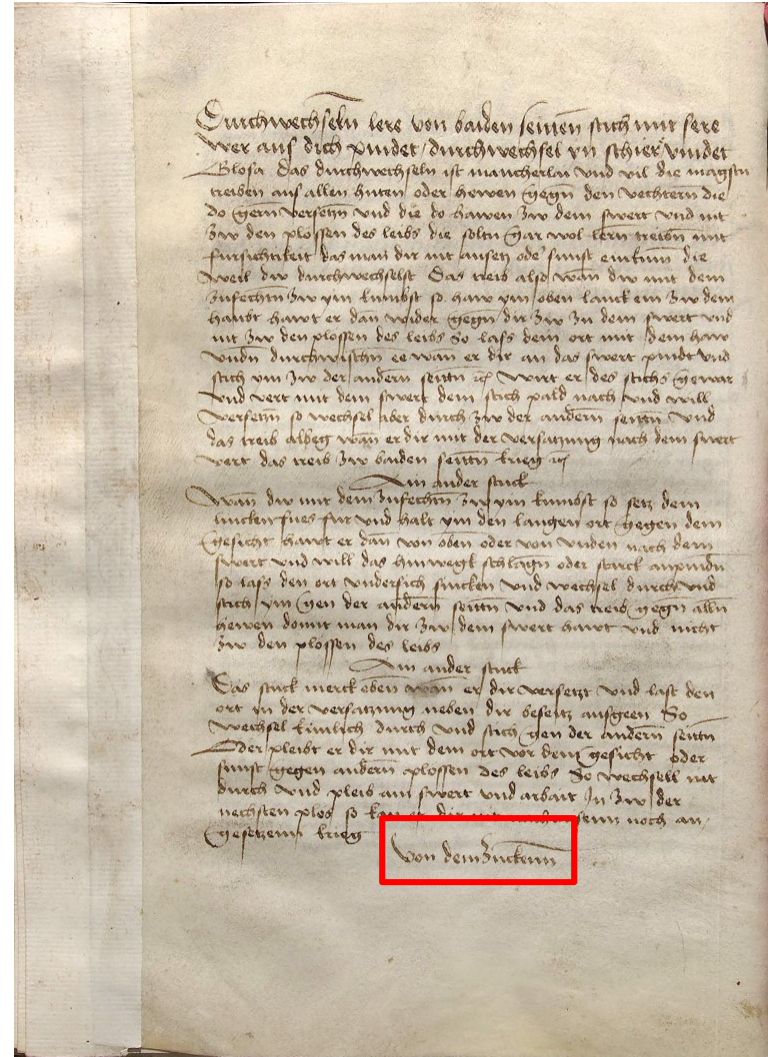 Durchwechseln lere von baiden seitten stich mit sere
wer auf dich pindet durchwechsel yn schier vindet
Glosa das durchwechseln ist mancherlai vnd vil die magstu
treiben aus allen huten oder hewen gegn den vechtern die
do gern versetzn vnd die do hawen zw dem swert vnd nit
zw den plossen des leibs die soltu gar wol lern treibn mit
fursichtikeit das man dir nit ansetz oder sunst einkum die
weil dw durchwechselst Das treib also wan dw mit dem
zufechtn zw ym kumbst so haw ym oben lanck ein zw dem
haubt hawt er dan wider gegn dir zw zu dem swert vnd
nit zw den plossen des leibs So lass dem ort mit dem haw
vndn durchwischn ee wan er dir an das swert pindt vnd
stich ym zw der andern seittn wirt er des stichs gewar
vnd vert mit dem swert dem stich pald nach vnd will
versetzn so wechsel aber durch zw der andern seittn vnd
das treib albeg wan er dir mit der versatzung nach dem swert
vert das treib zw baiden seittn krieg
Ain ander stuck
Wan dw mit dem zufechtn zw ym kumbst so setz dem
lincken fues fur vnd halt ym den langen ort gegen dem
gesicht hawt er dan von oben oder von vnden nach dem
swert vnd will das hinwegk schlagn oder starck anpindn
so lass den ort vndersich sincken vnd wechsel durch vnd
stich ym gen der andern seittn vnd das treib gegn alln
hewen domit man dir zw dem swert hawt vnd nicht
zw den plossen des leibs
Ain ander stuck
Das stuck merck eben wan er dir versetzt vnd last den
ort in der versatzung neben dir beseitz ausgeen So
wechsel kunlich durch vnd stich gen der andern seittn
Oder pleibt er dir mit dem ort vor dem gesicht oder
sunst gegen andern plossen des leibs So wechsell nit
durch vnd pleib am swert vnd arbait In zw der
nechsten plos so kan er dir nit noch an
gesetzenn krieg
Von dem zuckenn